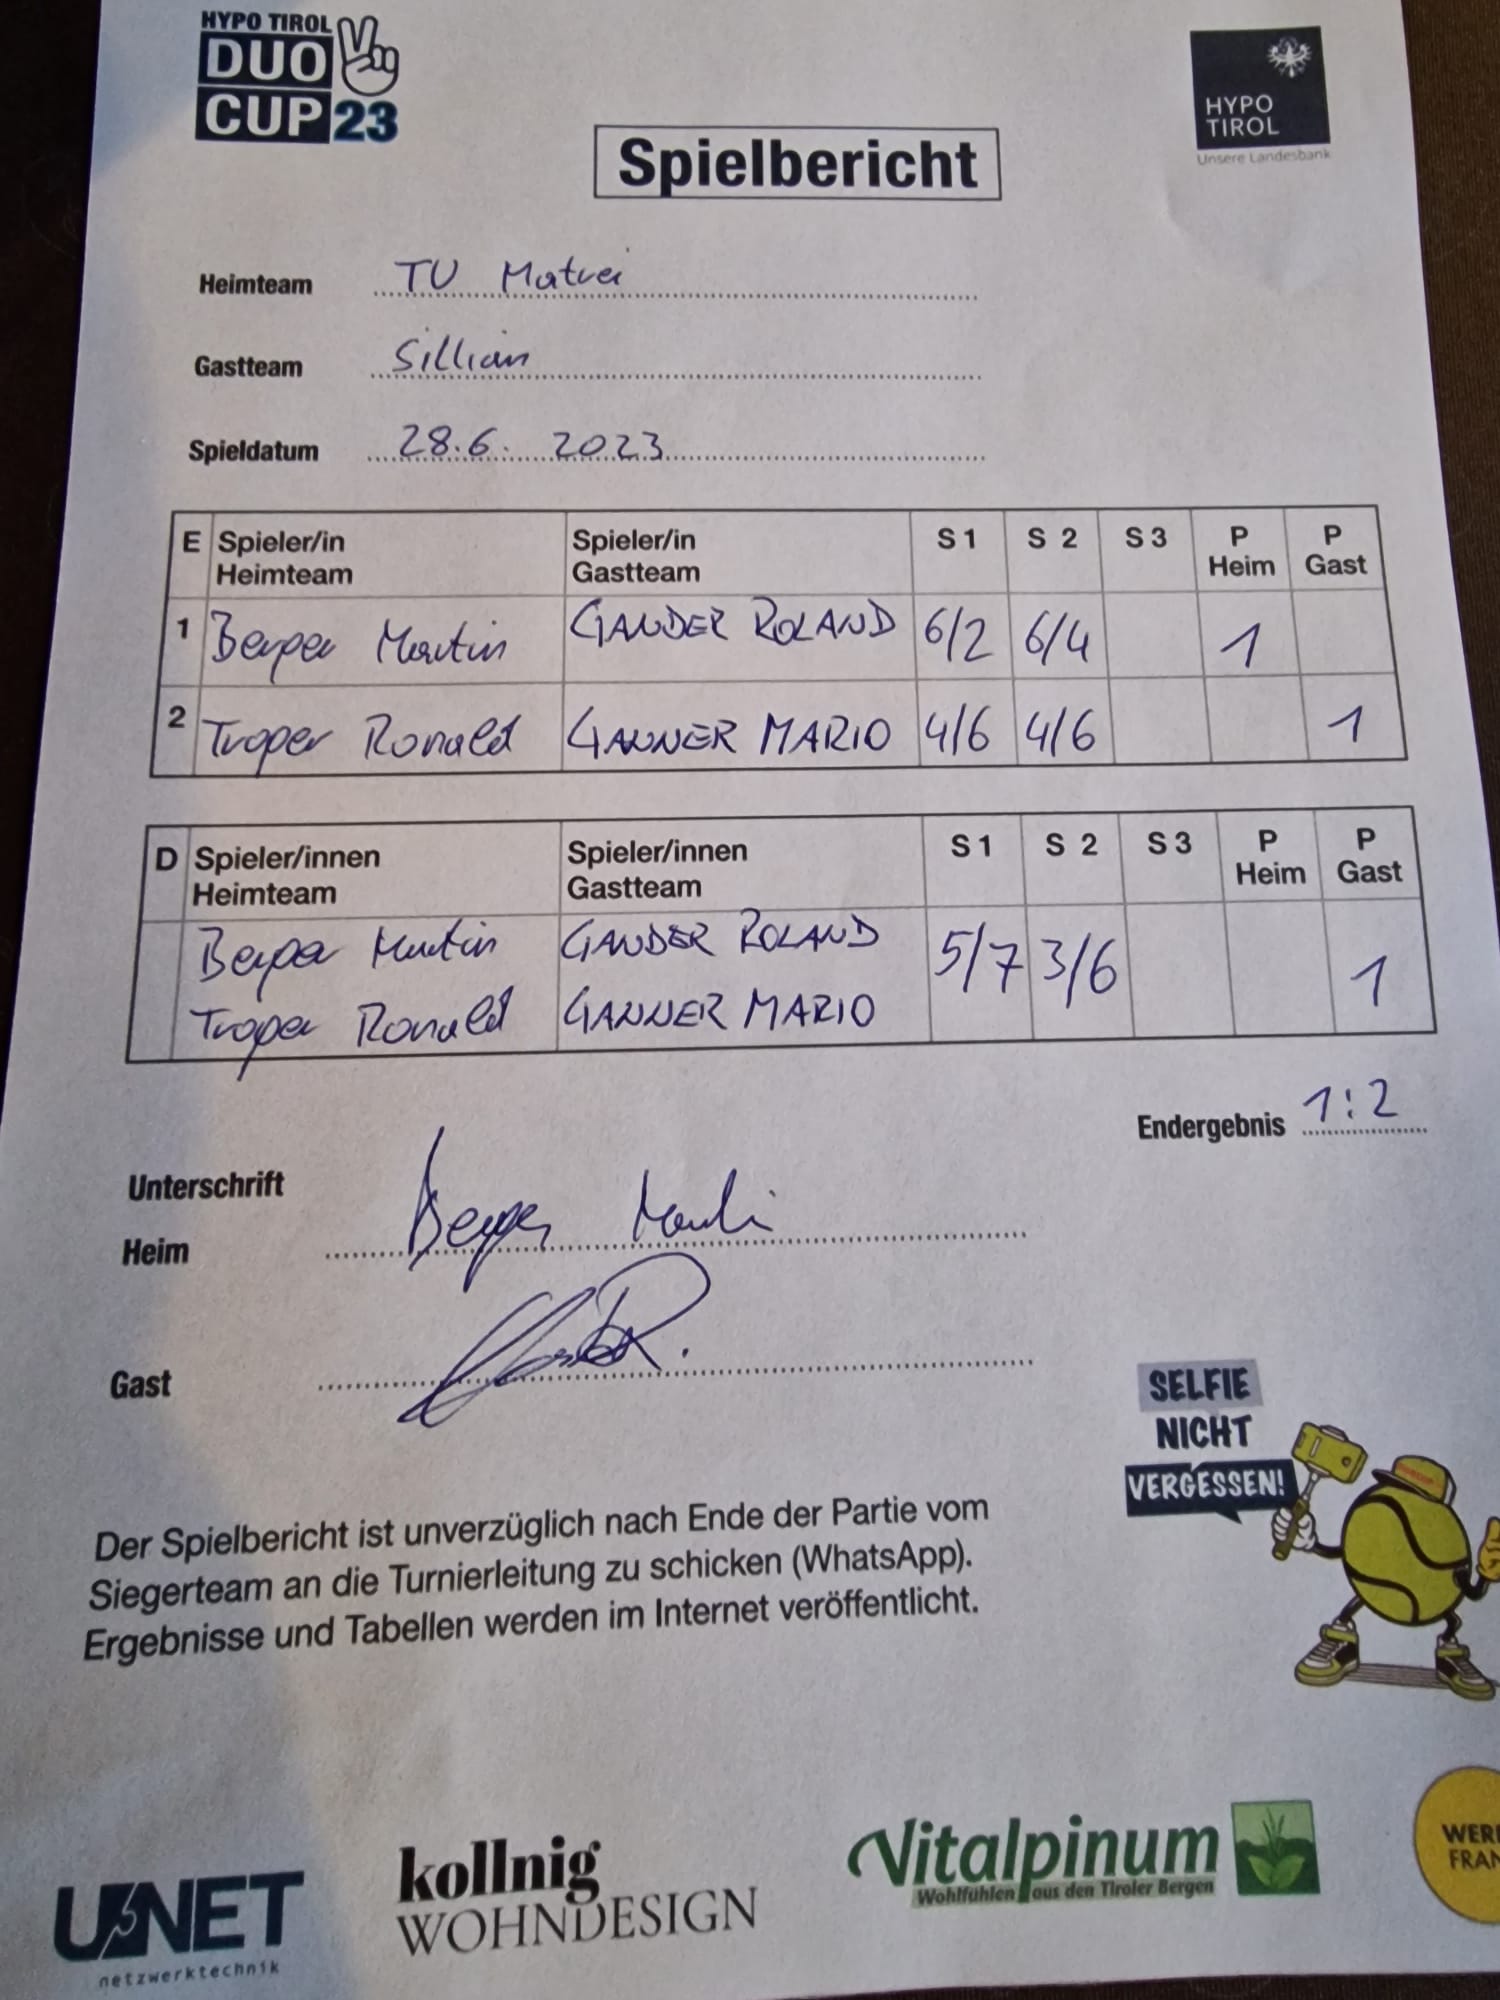 HYPO TIROL
DUO
CUP 23
HYPO
TIROL
Unsere Landesbank
Spielbericht
Heimteam TU Matrei
Gastteam Sillian
Spieldatum 28.6. 2023
E Spieler/in Heimteam Spieler/in Gastteam S 1 S 2 S 3 P Heim P Gast
1 Berger Martin GANDER ROLAND 6/2 6/4 1
2 Troper Ronald GANNER MARIO 4/6 4/6 1
D Spieler/innen Heimteam Spieler/innen Gastteam S 1 S 2 S 3 P Heim P Gast
Berger Martin GANDER ROLAND 5/7 3/6 1
Troper Ronald GANNER MARIO
Endergebnis 1:2
Unterschrift
Heim Berger Martin
Gast
SELFIE
NICHT
VERGESSEN!
Der Spielbericht ist unverzüglich nach Ende der Partie vom
Siegerteam an die Turnierleitung zu schicken (WhatsApp).
Ergebnisse und Tabellen werden im Internet veröffentlicht.
UNET
netzwerktechnik
kollnig
WOHNDESIGN
Vitalpinum
Wohlfühlen aus den Tiroler Bergen